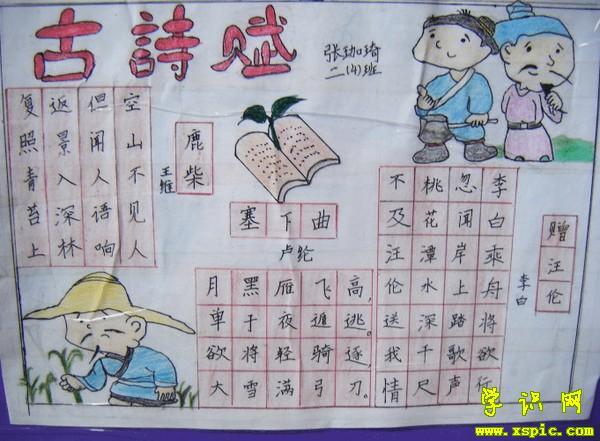 古詩赋
张珈琦
二(4)班
鹿柴
王维
空山不见人
但闻人语响
返景入深林
复照青苔上
塞下曲
卢纶
月黑雁飞高,
单于夜遁逃。
欲将轻骑逐,
大雪满弓刀。
赠汪伦
李白
李白乘舟将欲行
忽闻岸上踏歌声
桃花潭水深千尺
不及汪伦送我情
学识网
www.xspic.com